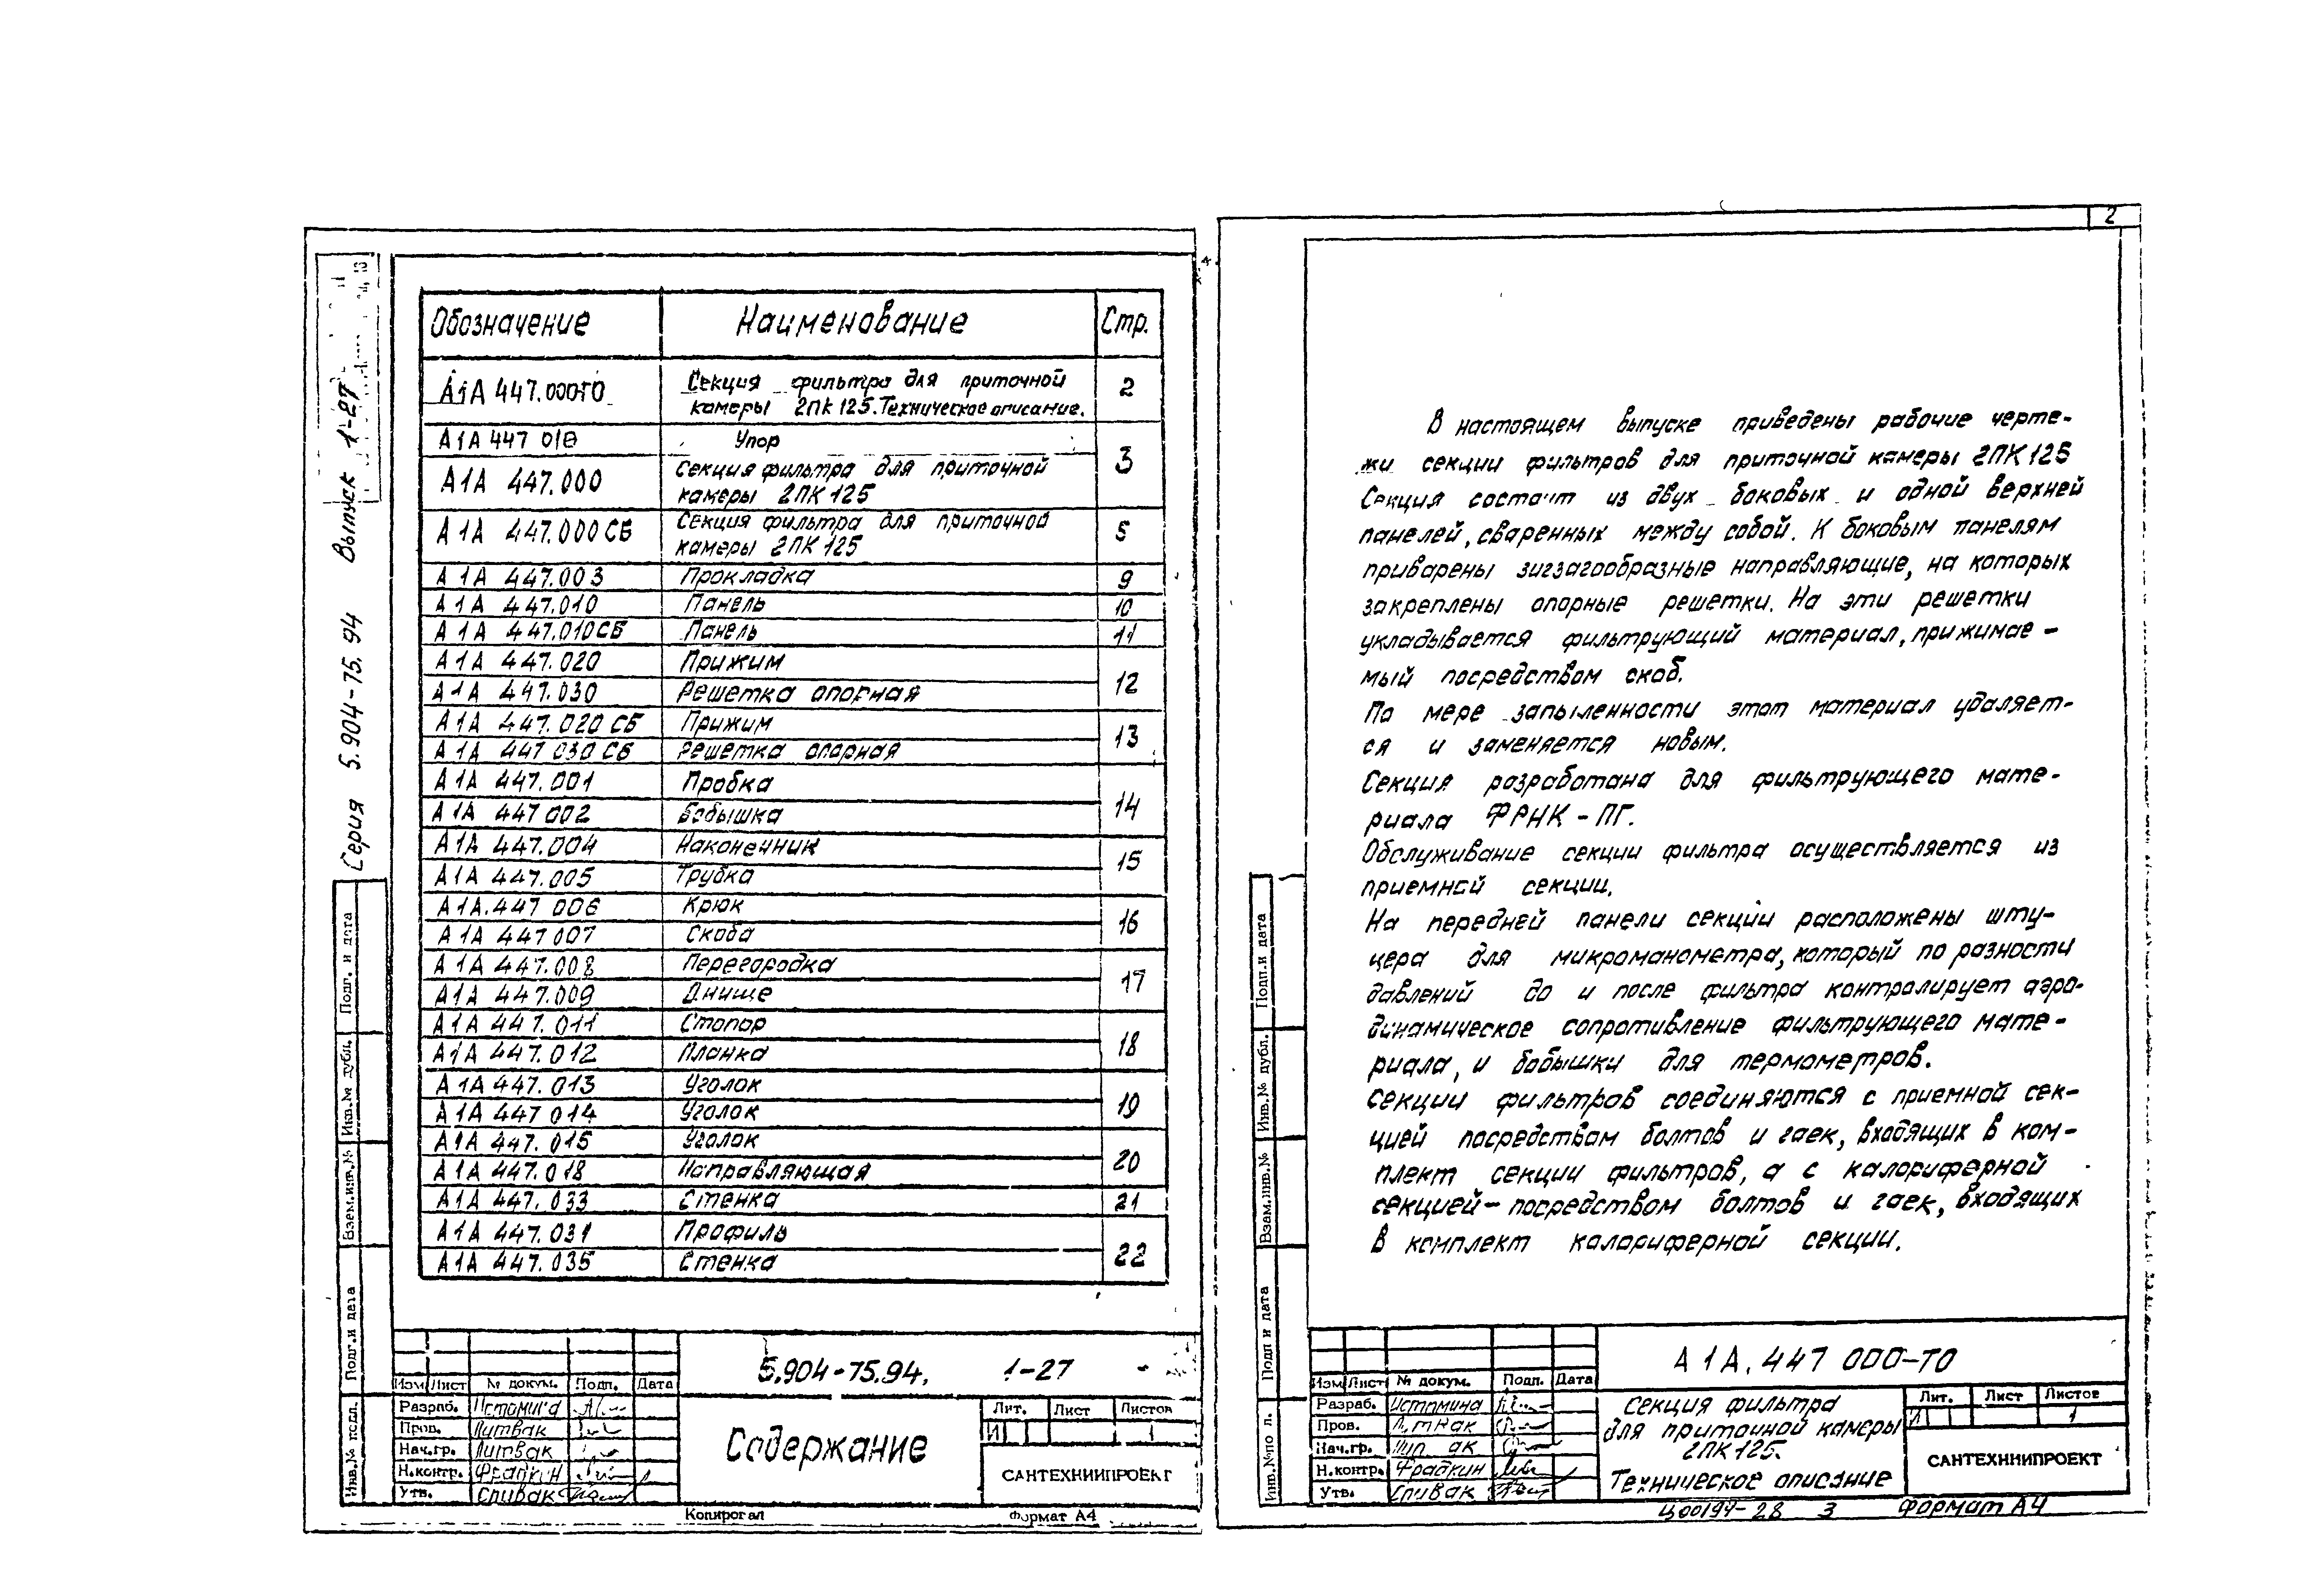 Серия 5.904-75.94 Выпуск 1-27
Обозначение Наименование Стр.
А1А 447.000ТО Секция фильтра для приточной
камеры 2ПК 125. Техническое описание. 2
А1А 447 010 Упор
3
А1А 447.000 Секция фильтра для приточной
камеры 2ПК 125
А1А 447.000 СБ Секция фильтра для приточной
камеры 2ПК 125 5
А1А 447.003 Прокладка 9
А1А 447.010 Панель 10
А1А 447.010СБ Панель 11
А1А 447.020 Прижим
12
А1А 447.030 Решетка опорная
А1А 447.020 СБ Прижим
13
А1А 447 030 СБ Решетка опорная
А1А 447.001 Пробка
14
А1А 447 002 Бобышка
А1А 447.004 Наконечник
15
А1А 447.005 Трубка
А1А.447 006 Крюк
16
А1А 447 007 Скоба
А1А 447.008 Перегородка
17
А1А 447.009 Днище
А1А 447.011 Стопор
18
А1А 447.012 Планка
А1А 447.013 Уголок
19
А1А 447 014 Уголок
А1А 447.015 Уголок
20
А1А 447.018 Направляющая
А1А 447.033 Стенка 21
А1А 447.031 Профиль
22
А1А 447.035 Стенка
Подп. и дата
Инв.№ дубл.
Взам.инв.№
Подп.и дата
Инв.№ подл.
5.904-75.94. 1-27
Изм Лист № докум. Подп. Дата
Разраб. Истомина
Пров. Литвак
Нач.гр. Литвак
Н.контр. Фрадкин
Утв. Спивак
Содержание
Лит. Лист Листов
И 1
САНТЕХНИИПРОЕКТ
Копировал Формат А4
2
В настоящем выпуске приведены рабочие черте-
жи секции фильтров для приточной камеры 2ПК 125
Секция состоит из двух боковых и одной верхней
панелей, сваренных между собой. К боковым панелям
приварены зигзагообразные направляющие, на которых
закреплены опорные решетки. На эти решетки
укладывается фильтрующий материал, прижимае-
мый посредством скоб.
По мере запыленности этот материал удаляет-
ся и заменяется новым.
Секция разработана для фильтрующего мате-
риала ФРНК-ПГ.
Обслуживание секции фильтра осуществляется из
приемной секции.
На передней панели секции расположены шту-
цера для микроманометра, который по разности
давлений до и после фильтра контролирует аэро-
динамическое сопротивление фильтрующего мате-
риала, и бобышки для термометров.
Секции фильтров соединяются с приемной сек-
цией посредством болтов и гаек, входящих в ком-
плект секции фильтров, а с калориферной
секцией - посредством болтов и гаек, входящих
в комплект калориферной секции.
Подп.и дата
Инв.№ дубл.
Взам.инв.№
Подп и дата
Инв.№по л.
А1А.447 000-ТО
Изм Лист № докум. Подп. Дата
Разраб. Истомина
Пров. Литвак
Нач.гр.
Н.контр. Фрадкин
Утв. Спивак
Секция фильтра
для приточной камеры
2ПК 125.
Техническое описание
Лит. Лист Листов
И 1
САНТЕХНИИПРОЕКТ
Ц00197-28 3 Формат А4